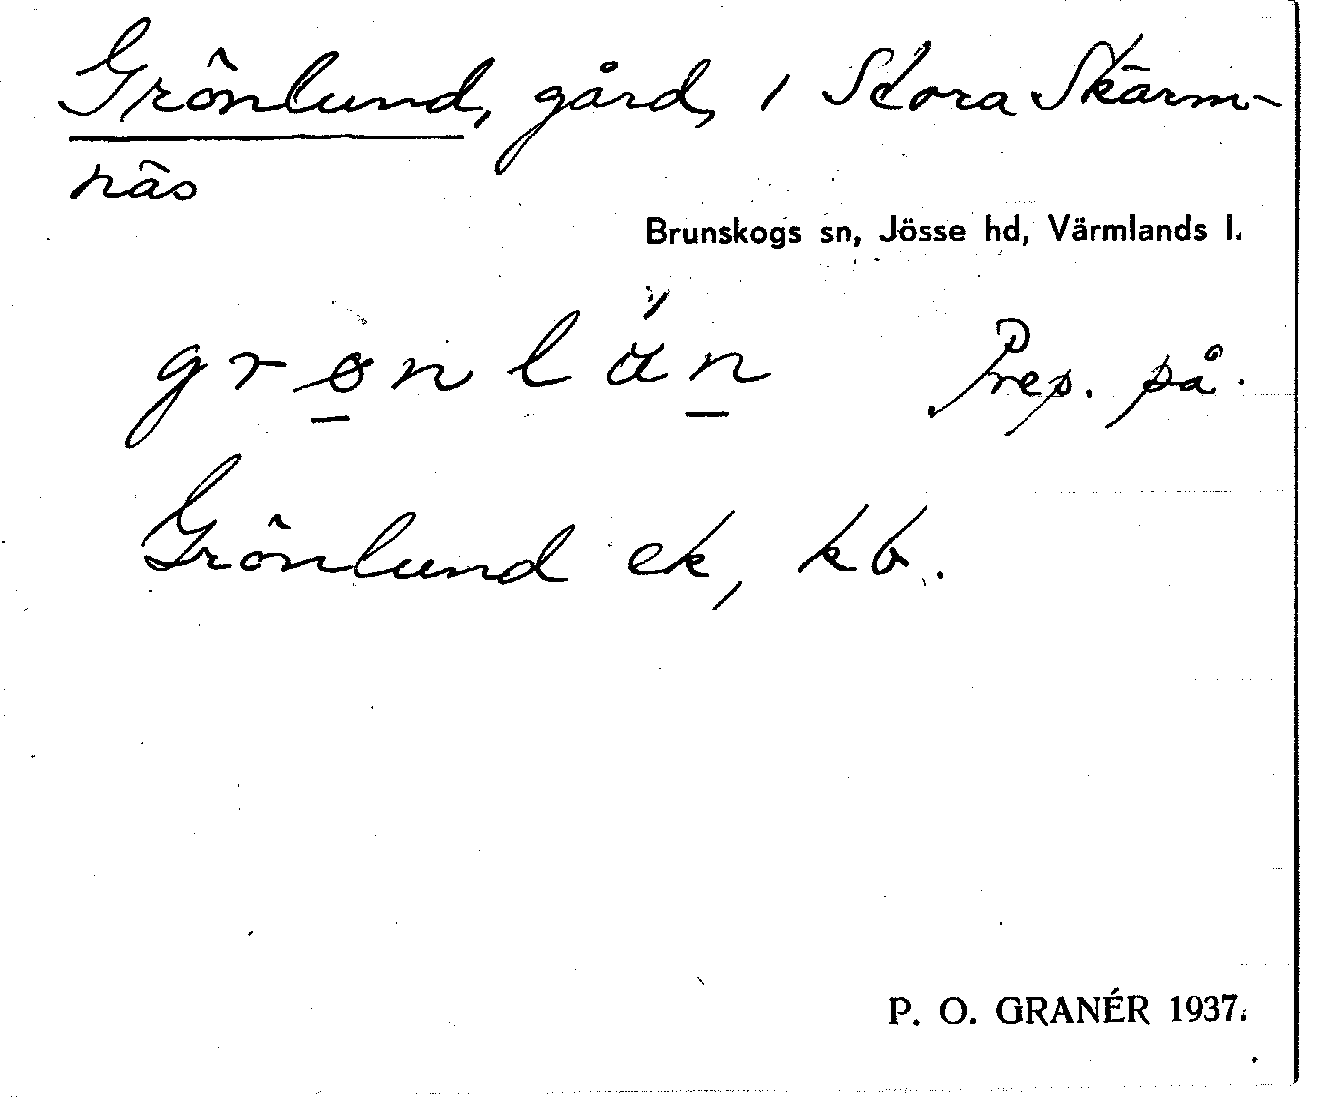 Grönlund, gård, i Stora Skärm-
näs
Brunskogs sn, Jösse hd, Värmlands l.
grønlän Prep. på.
Grönlund ek, kb.
P. O. GRANÉR 1937.